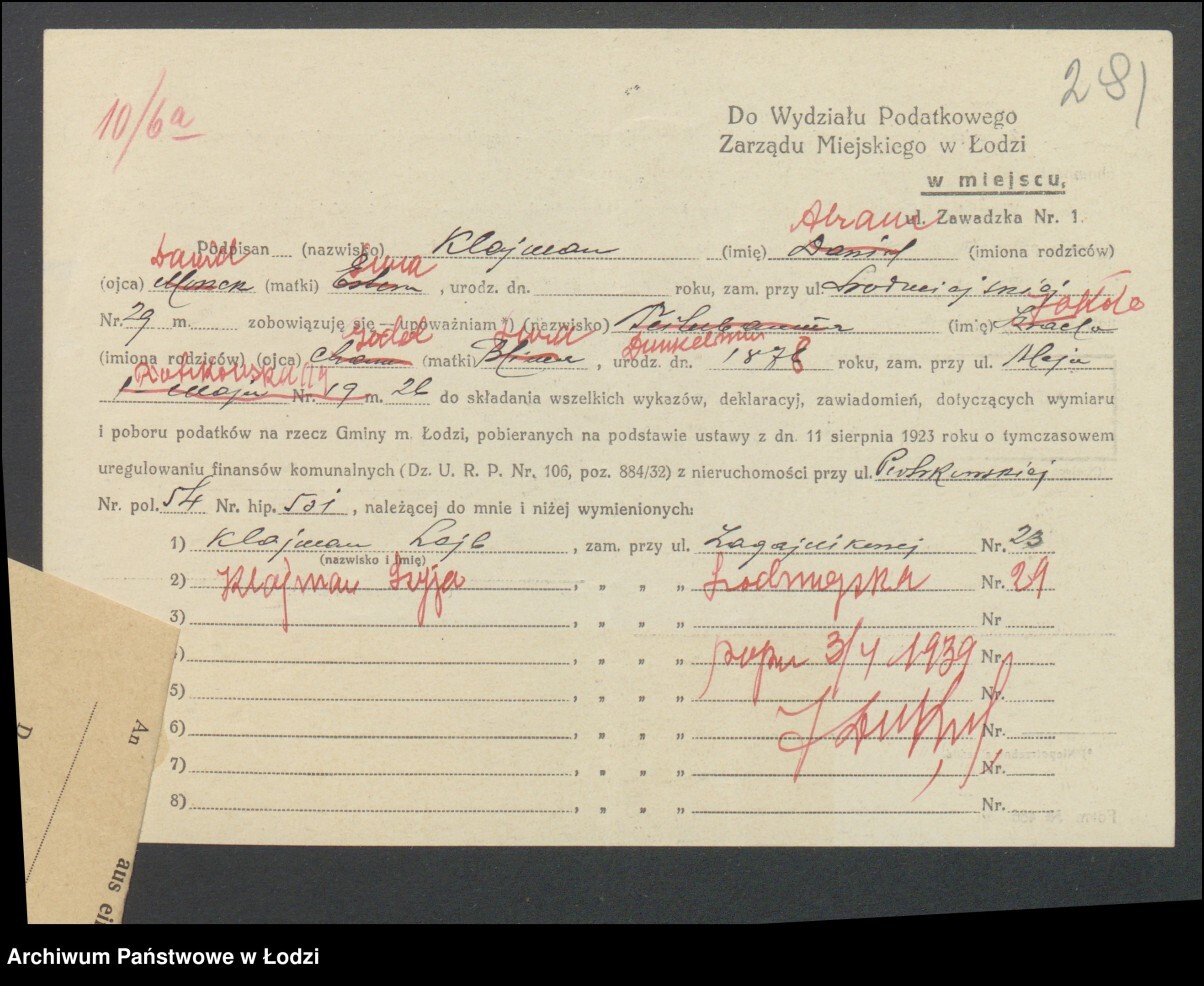 281
10/6a
Do Wydziału Podatkowego
Zarządu Miejskiego w Łodzi
w miejscu,
ul. Zawadzka Nr. 1.
Abram
Podpisan (nazwisko) Klajman (imię) Daniel (imiona rodziców)
Dawid Ewa
(ojca) Moszek (matki) Estera, urodz. dn. roku, zam. przy ul. Śródmiejskiej
Nr. 29 m. zobowiązuję się – upoważniam*) (nazwisko) (imię)
Dunkelman
(imiona rodziców) (ojca) (matki) , urodz. dn. 1878 roku, zam. przy ul. Aleja
1 Maja Nr. 19 m. 26 do składania wszelkich wykazów, deklaracyj, zawiadomień, dotyczących wymiaru
i poboru podatków na rzecz Gminy m. Łodzi, pobieranych na podstawie ustawy z dn. 11 sierpnia 1923 roku o tymczasowem
uregulowaniu finansów komunalnych (Dz. U. R. P. Nr. 106, poz. 884/32) z nieruchomości przy ul. Piotrkowskiej
Nr. pol. 54 Nr. hip. 501, należącej do mnie i niżej wymienionych:
1) Klajman Lajb, zam. przy ul. Zagajnikowej Nr. 23
(nazwisko i imię)
2) Klajman Szyja, „ „ „ Śródmiejska Nr. 29
3) , „ „ „ Nr
) , „ „ „ Nr.
3/4 1939
5) , „ „ „ Nr.
6) , „ „ „ Nr.
7) , „ „ „ Nr.
8) , „ „ „ Nr.
An
D
aus ein
Archiwum Państwowe w Łodzi